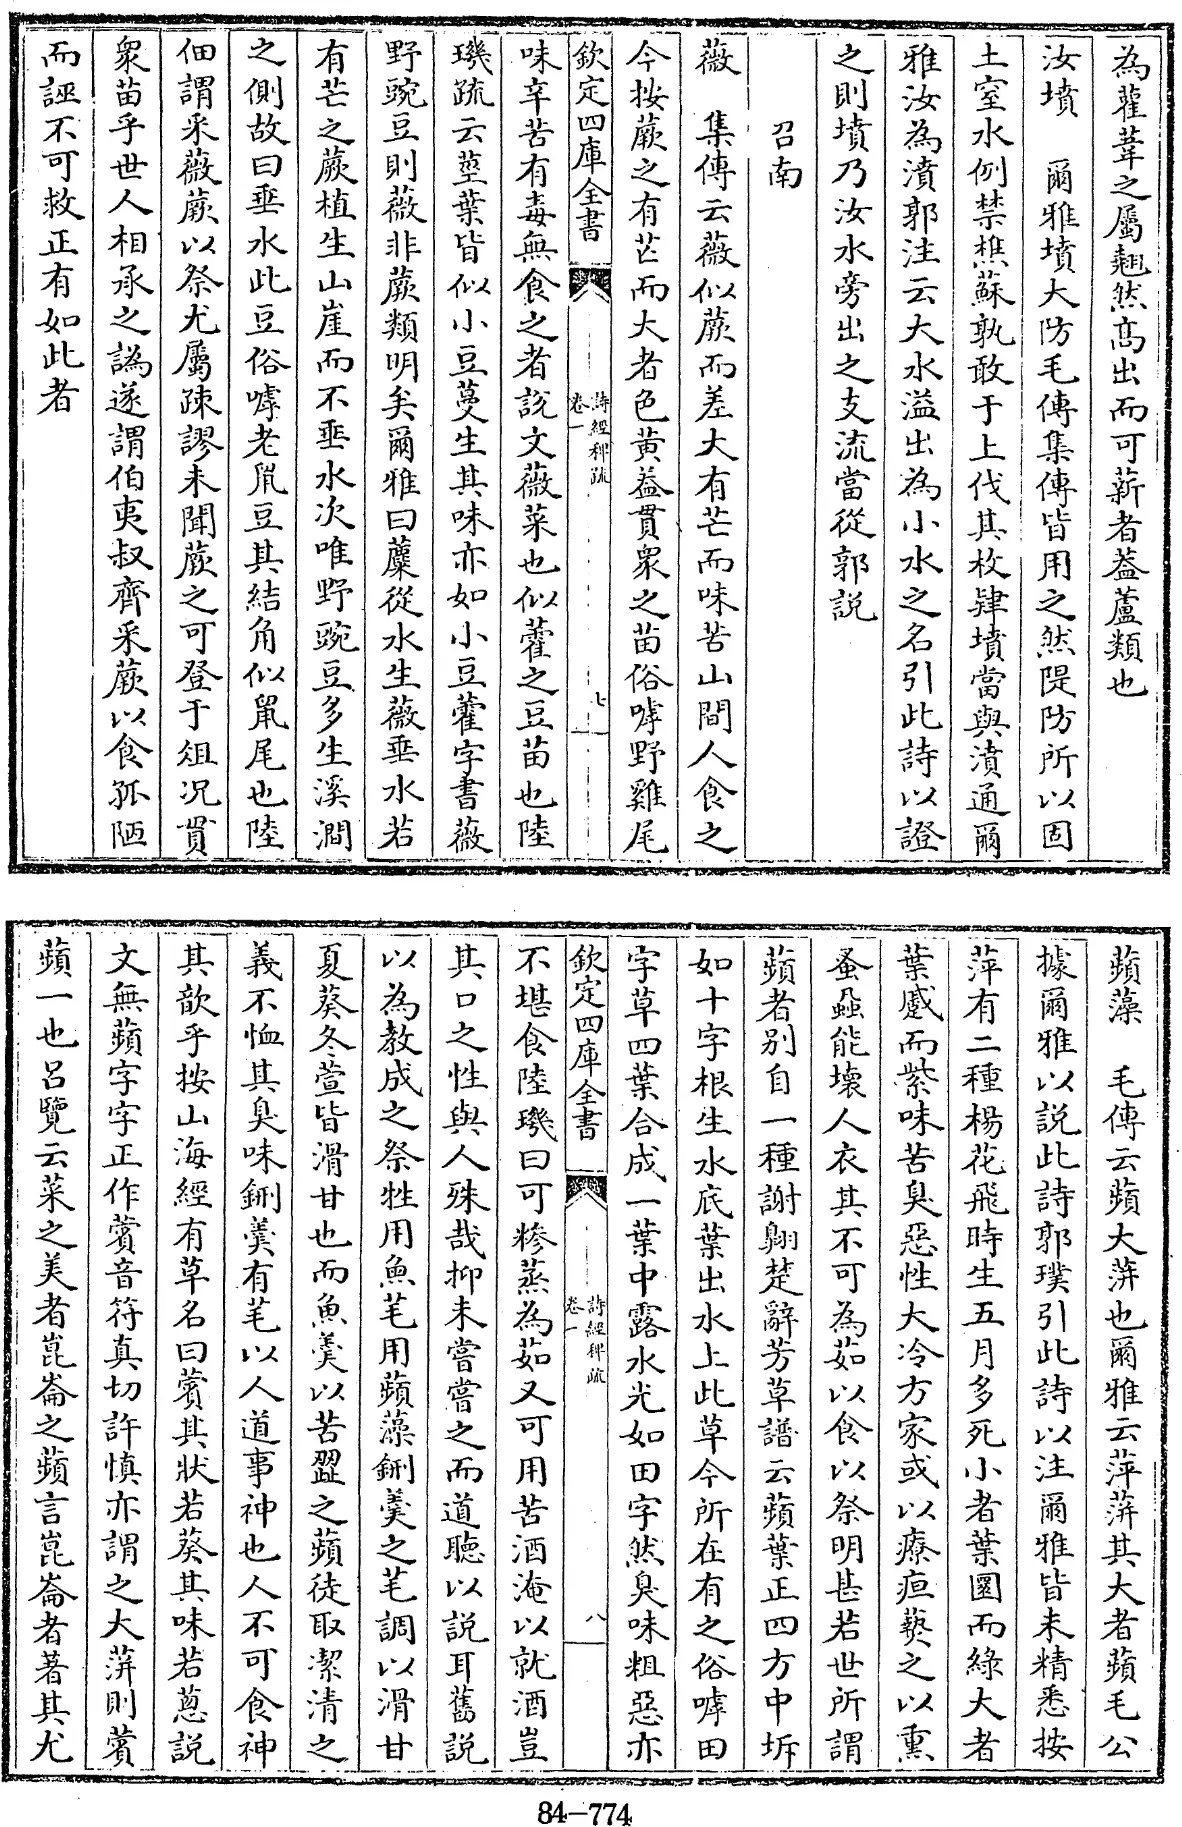 為雚葦之屬翹然髙出而可薪者葢蘆類也
汝墳　爾雅墳大防毛傳集傳皆用之然隄防所以固
土室水例禁樵蘇孰敢于上伐其枚肄墳當與濆通爾
雅汝為濆郭注云大水溢出為小水之名引此詩以證
之則墳乃汝水旁出之支流當從郭説
召南
薇　集傳云薇似蕨而差大有芒而味苦山間人食之
今按蕨之有芒而大者色黄葢貫衆之苗俗嘑野雞尾
欽定四庫全書
詩經稗疏
卷一
七
味辛苦有毒無食之者說文薇菜也似藿之豆苗也陸
璣疏云莖葉皆似小豆蔓生其味亦如小豆藿字書薇
野豌豆則薇非蕨類明矣爾雅曰蘪從水生薇垂水若
有芒之蕨植生山崖而不垂水次唯野豌豆多生溪澗
之側故曰垂水此豆俗嘑老鼠豆其結角似鼠尾也陸
佃謂采薇蕨以祭尤屬疎謬未聞蕨之可登于俎况貫
衆苗乎世人相承之譌遂謂伯夷叔齊采蕨以食孤陋
而誣不可救正有如此者
蘋藻　毛傳云蘋大蓱也爾雅云萍蓱其大者蘋毛公
據爾雅以説此詩郭璞引此詩以注爾雅皆未精悉按
萍有二種楊花飛時生五月多死小者葉圓而綠大者
葉蹙而紫味苦臭惡性大冷方家或以療疸爇之以熏
蚤蝨能壞人衣其不可為茹以食以祭明甚若世所謂
蘋者别自一種謝翺楚辭芳草譜云蘋葉正四方中坼
如十字根生水底葉出水上此草今所在有之俗嘑田
字草四葉合成一葉中露水光如田字然臭味粗惡亦
欽定四庫全書
詩經稗疏
卷一
八
不堪食陸璣曰可糝蒸為茹又可用苦酒淹以就酒豈
其口之性與人殊哉抑未嘗嘗之而道聽以説耳舊説
以為教成之祭牲用魚芼用蘋藻鉶羮之芼調以滑甘
夏葵冬荁皆滑甘也而魚羮以苦澀之蘋徒取潔清之
義不恤其臭味鉶羮有芼以人道事神也人不可食神
其歆乎按山海經有草名曰薲其狀若葵其味若葱説
文無蘋字字正作薲音符真切許慎亦謂之大蓱則薲
蘋一也呂覽云菜之美者崑崙之蘋言崑崙者著其尤
84-774